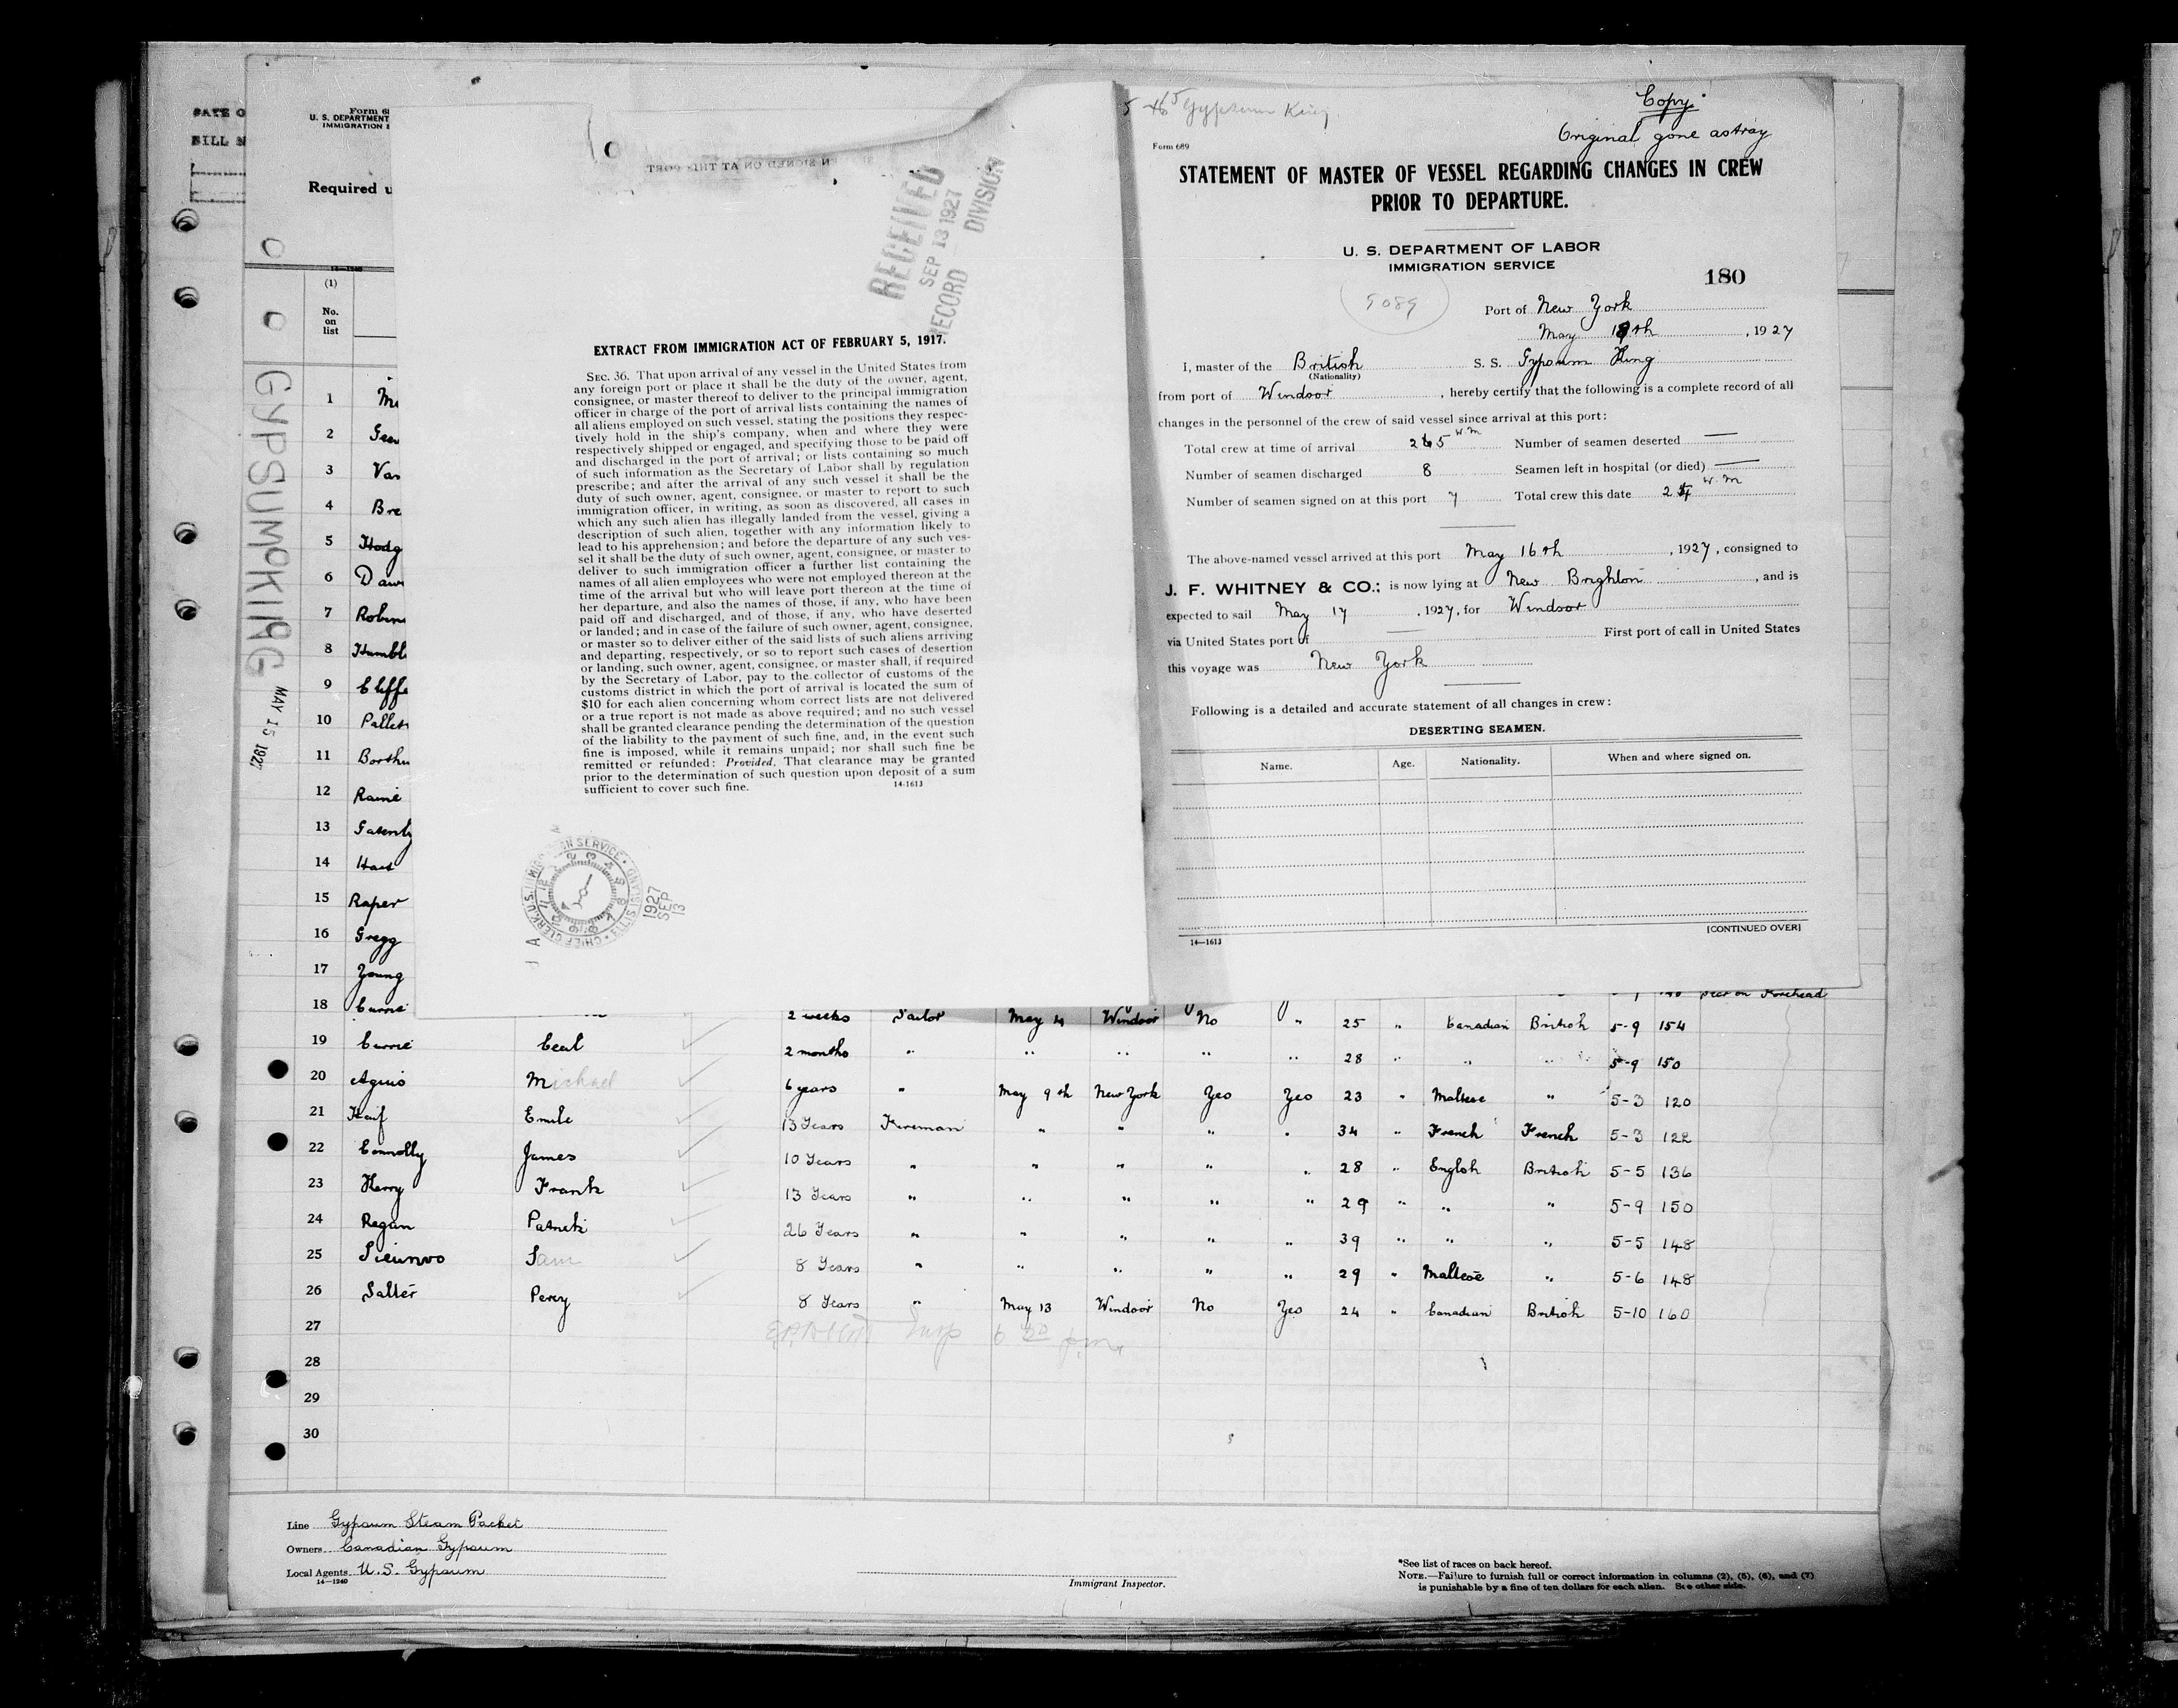 DATE O
BILL N
Form 68
U. S. DEPARTMENT
IMMIGRATION
Required u
14-1240
(1)
No.
on
list
GYPSUM KING
MAY 15 1927
TO SIGNED ON AT THIS PORT
RECEIVED
SEP 13 1927
RECORD DIVISION
EXTRACT FROM IMMIGRATION ACT OF FEBRUARY 5, 1917.
SEC. 36. That upon arrival of any vessel in the United States from
any foreign port or place it shall be the duty of the owner, agent,
consignee, or master thereof to deliver to the principal immigration
officer in charge of the port of arrival lists containing the names of
all aliens employed on such vessel, stating the positions they respec-
tively hold in the ship's company, when and where they were
respectively shipped or engaged, and specifying those to be paid off
and discharged in the port of arrival; or lists containing so much
of such information as the Secretary of Labor shall by regulation
prescribe; and after the arrival of any such vessel it shall be the
duty of such owner, agent, consignee, or master to report to such
immigration officer, in writing, as soon as discovered, all cases in
which any such alien has illegally landed from the vessel, giving a
description of such alien, together with any information likely to
lead to his apprehension; and before the departure of any such ves-
sel it shall be the duty of such owner, agent, consignee, or master to
deliver to such immigration officer a further list containing the
names of all alien employees who were not employed thereon at the
time of the arrival but who will leave port thereon at the time of
her departure, and also the names of those, if any, who have been
paid off and discharged, and of those, if any, who have deserted
or landed; and in case of the failure of such owner, agent, consignee,
or master so to deliver either of the said lists of such aliens arriving
and departing, respectively, or so to report such cases of desertion
or landing, such owner, agent, consignee, or master shall, if required
by the Secretary of Labor, pay to the collector of customs of the
customs district in which the port of arrival is located the sum of
$10 for each alien concerning whom correct lists are not delivered
or a true report is not made as above required; and no such vessel
shall be granted clearance pending the determination of the question
of the liability to the payment of such fine, and, in the event such
fine is imposed, while it remains unpaid; nor shall such fine be
remitted or refunded: Provided, That clearance may be granted
prior to the determination of such question upon deposit of a sum
sufficient to cover such fine.
14-1613
CHIEF CLERK U.S. IMMIGRATION SERVICE · ELLIS ISLAND
1927
SEP
13
Gypsum King
Copy
Original gone astray
Form 689
STATEMENT OF MASTER OF VESSEL REGARDING CHANGES IN CREW
PRIOR TO DEPARTURE.
U. S. DEPARTMENT OF LABOR
IMMIGRATION SERVICE
180
5089
Port of New York
May 18th, 1927
I, master of the British S. S. Gypsum King
(Nationality)
from port of Windsor, hereby certify that the following is a complete record of all
changes in the personnel of the crew of said vessel since arrival at this port:
Total crew at time of arrival 25 W.M Number of seamen deserted —
Number of seamen discharged 8 Seamen left in hospital (or died) —
Number of seamen signed on at this port 7 Total crew this date 24 W.M
The above-named vessel arrived at this port May 16th, 1927, consigned to
J. F. WHITNEY & CO.; is now lying at New Brighton, and is
expected to sail May 17, 1927, for Windsor
via United States port of — First port of call in United States
this voyage was New York
Following is a detailed and accurate statement of all changes in crew:
DESERTING SEAMEN.
Name. Age. Nationality. When and where signed on.
14—1613 [CONTINUED OVER]
1 Mu
2 Gree
3 Vas
4 Bre
5 Hodg
6 Daw
7 Robin
8 Humbl
9 Cliffo
10 Pallet
11 Borthw
12 Raine
13 Gatenby
14 Hart
15 Raper
16 Gregg
17 Young
scar on Forehead
18 Currie 2 weeks Sailor May 4 Windsor No " 25 " Canadian British 5-9 154
19 Currie Cecil 2 months " " " " " 28 " " " 5-9 150
20 Agius Michael 6 years " May 9th New York Yes Yes 23 " Maltese " 5-3 120
21 Haif Emile 13 Years Fireman " " " " 34 " French French 5-3 122
22 Connolly James 10 Years " " " " " 28 " English British 5-5 136
23 Kerry Frank 13 Years " " " " " 29 " " " 5-9 150
24 Regan Patrick 26 Years " " " " " 39 " " " 5-5 148
25 Sam 8 Years " " " " " 29 " Maltese " 5-6 148
26 Salter Percy 8 Years " May 13 Windsor No Yes 24 " Canadian British 5-10 160
27 Insp 6 30 p.m.
28
29
30
Line Gypsum Steam Packet
Owners Canadian Gypsum
Local Agents U.S. Gypsum
14—1240
Immigrant Inspector.
*See list of races on back hereof.
NOTE.—Failure to furnish full or correct information in columns (2), (5), (6), and (7)
is punishable by a fine of ten dollars for each alien. See other side.